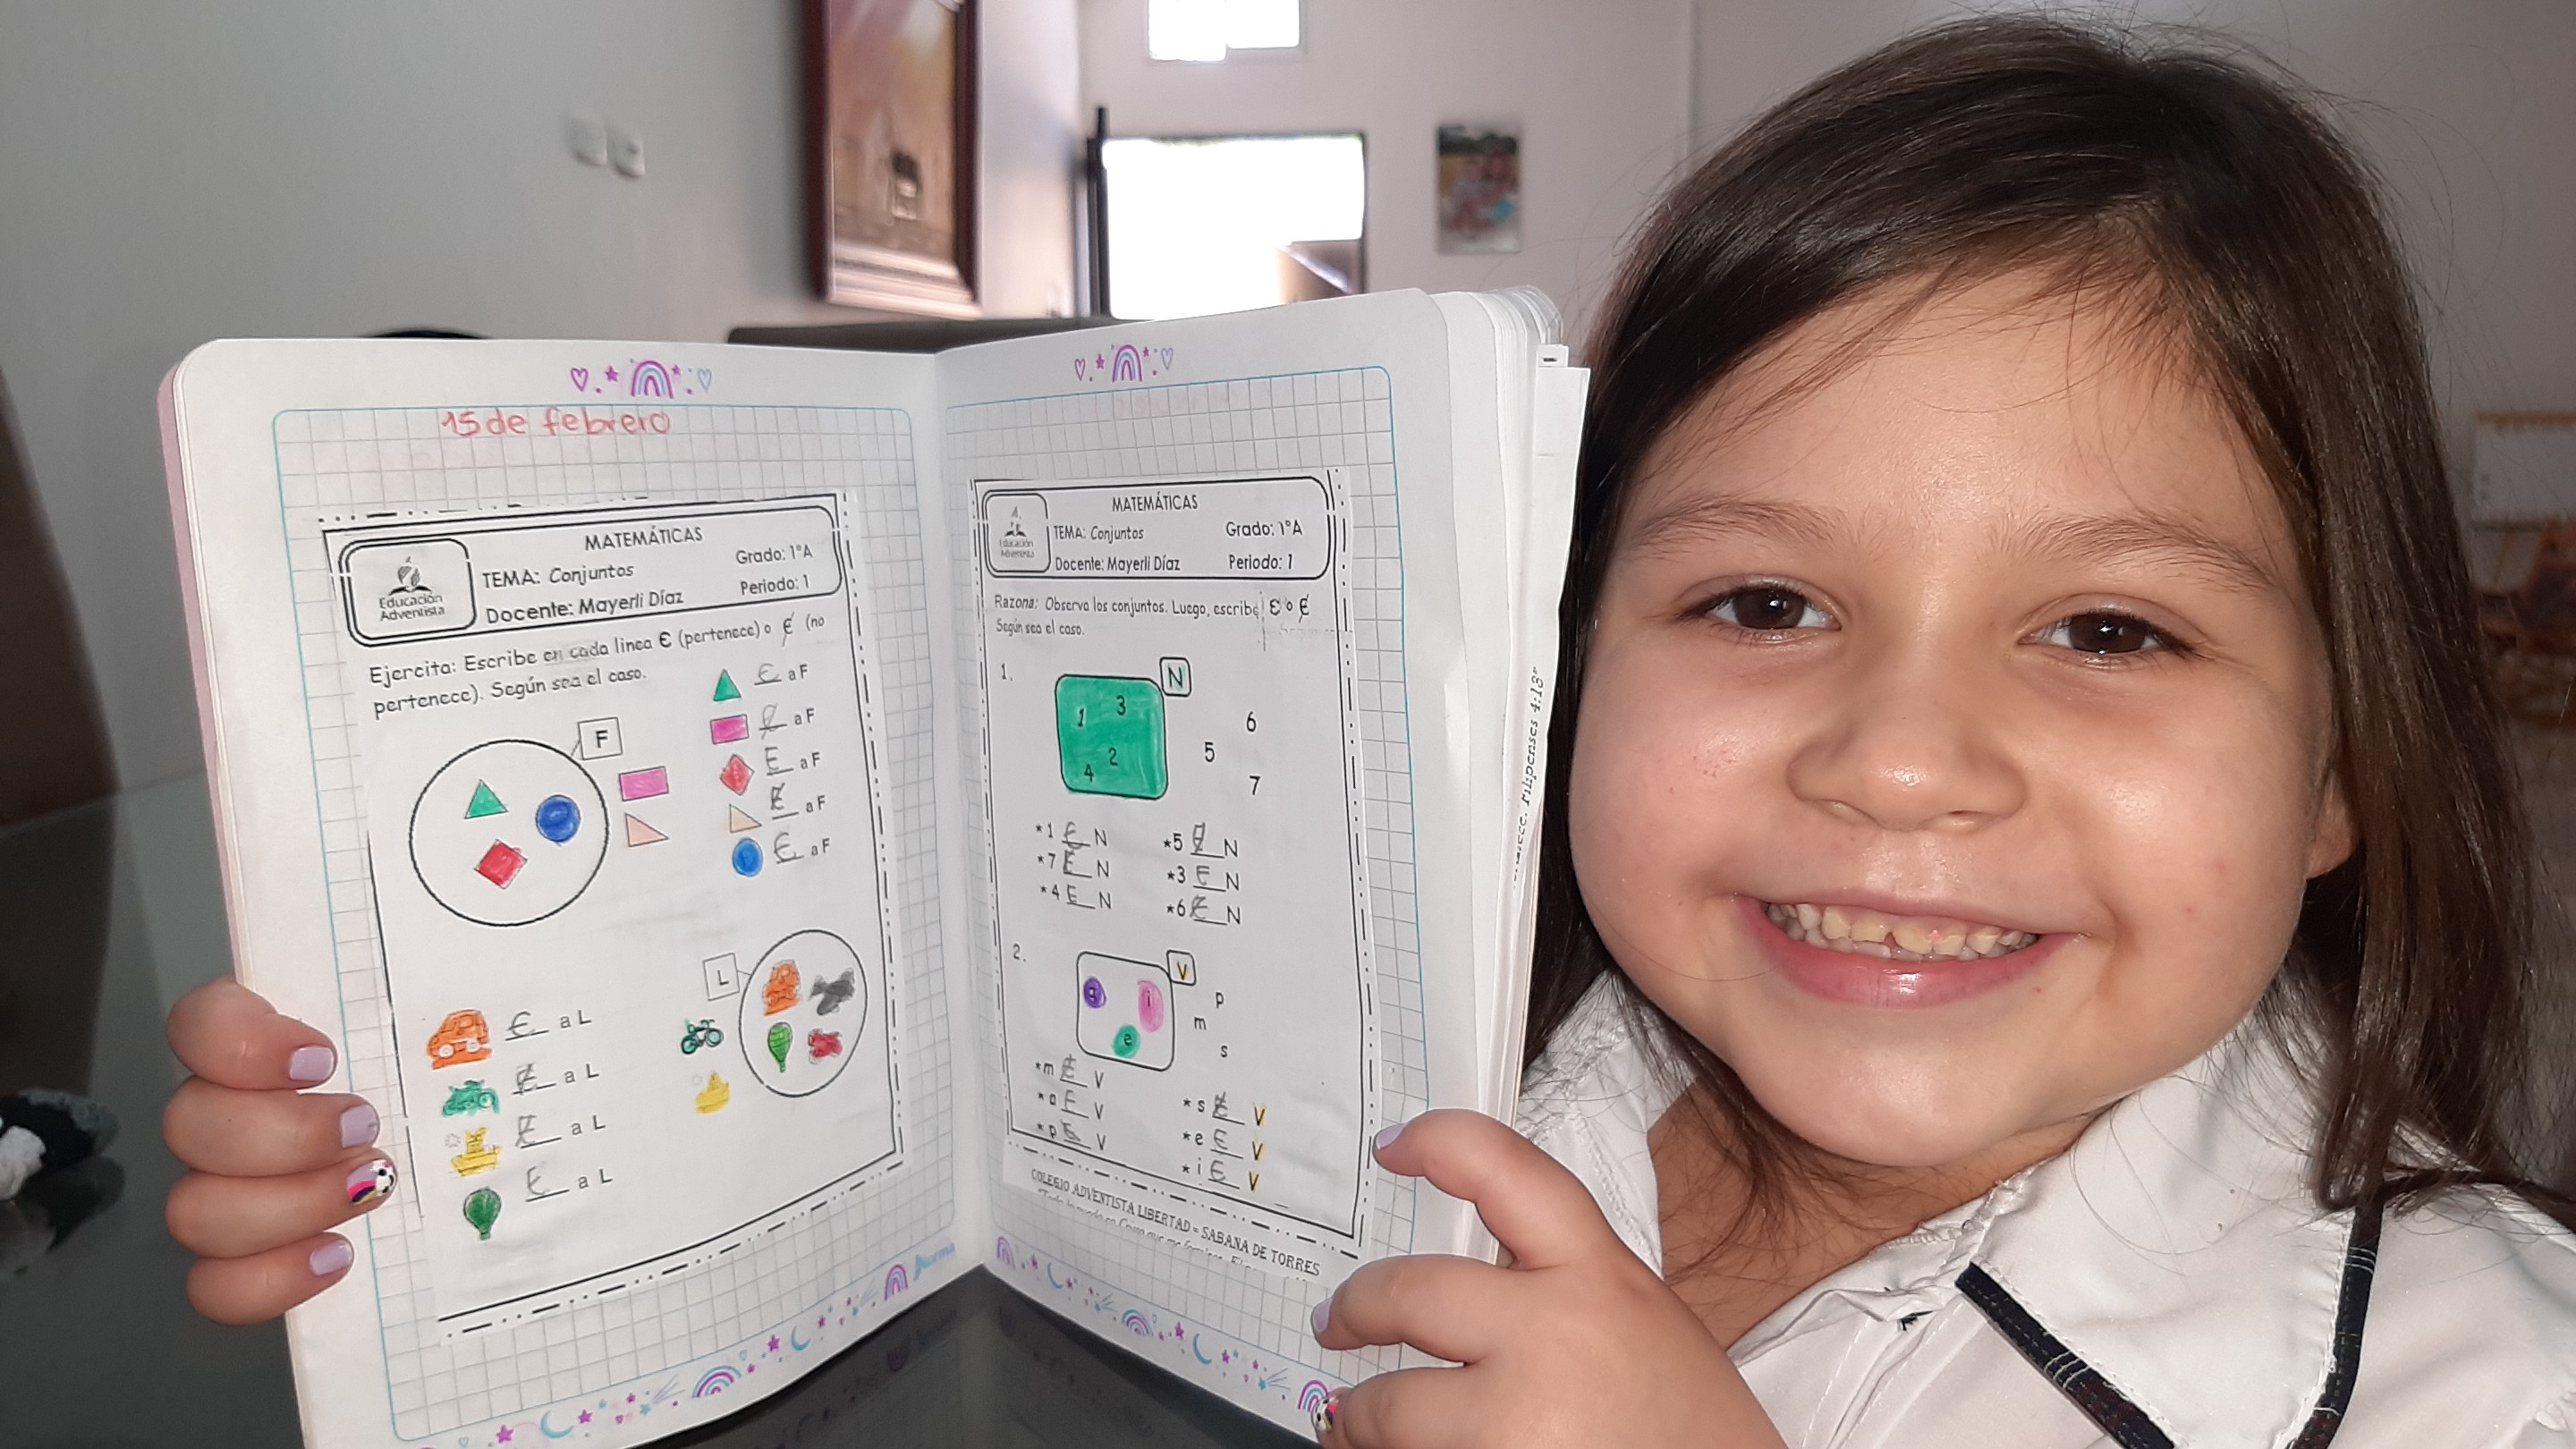 15 de febrero
MATEMÁTICAS
Educación
Adventista
TEMA: Conjuntos
Grado: 1°A
Docente: Mayerli Díaz
Periodo: 1
Ejercita: Escribe en cada linea Є (pertenece) o Є̸ (no
pertenece). Según sea el caso.
Є a F
Є̸ a F
F
Є a F
Є̸ a F
Є a F
L
Є a L
Є̸ a L
Є̸ a L
Є a L
Norma
MATEMÁTICAS
Educación
Adventista
TEMA: Conjuntos
Grado: 1°A
Docente: Mayerli Díaz
Periodo: 1
Razona: Observa los conjuntos. Luego, escribe Є o Є̸
Según sea el caso.
1.
N
1 3
2
4
6
5
7
*1 Є N *5 Є̸ N
*7 Є̸ N *3 Є N
*4 Є N *6 Є̸ N
2.
V
a i
e
p
m
s
*m Є̸ V *s Є̸ V
*a Є V *e Є V
*p Є̸ V *i Є V
COLEGIO ADVENTISTA LIBERTAD - SABANA DE TORRES
"Todo lo puedo en Cristo que me
Filipenses 4:13"